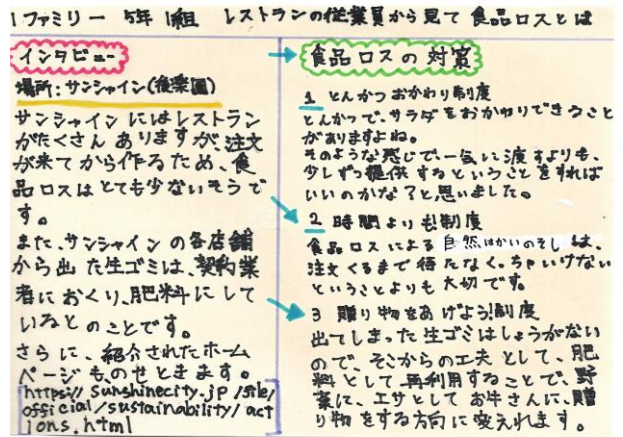 1ファミリー 5年1組 レストランの従業員から見て食品ロスとは
インタビュー
場所:サンシャイン(後楽園)
サンシャインにはレストラン
がたくさんありますが、注文
が来てから作るため、食
品ロスはとても少ないそうで
す。
また、サンシャインの各店舗
から出た生ゴミは、契約業
者におくり、肥料にして
いるとのことです。
さらに、紹介されたホーム
ページものせときます。
https://sunshinecity.jp/file/
official/sustainability/act
ions.html
食品ロスの対策
1 とんかつおかわり制度
とんかつで、サラダをおかわりできること
がありますよね。
そのような感じで、一気に渡すよりも、
少しずつ提供するということをすれば
いいのかな?と思いました。
2 時間よりも制度
食品ロスによる自然はかいのそしは、
注文くるまで待たなくっちゃいけない
ということよりも大切です。
3 贈り物をあげよう!制度
出てしまった生ゴミはしょうがない
ので、そこからの工夫として、肥
料として再利用することで、野
菜に、エサとしてお牛さんに、贈
り物をする方向に変えれます。